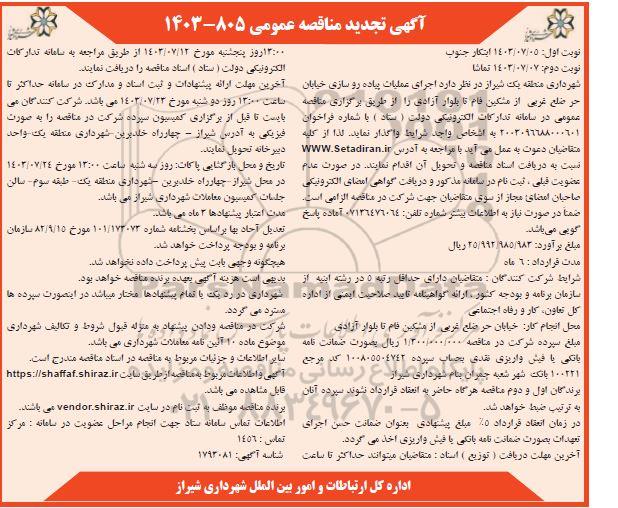 آگهی تجدید مناقصه عمومی ۸۰۵-۱۴۰۳
نوبت اول: ۱۴۰۳/۰۷/۰۵ ابتکار جنوب
نوبت دوم: ۱۴۰۳/۰۷/۰۷ تماشا
شهرداری منطقه یک شیراز در نظر دارد اجرای عملیات پیاده رو سازی خیابان
حر ضلع غربی از مشکین فام تا بلوار آزادی را از طریق برگزاری مناقصه
عمومی در سامانه تدارکات الکترونیکی دولت ( ستاد ) با شماره فراخوان
۲۰۰۳۰۹۶۸۸۰۰۰۶۰۱ به اشخاص واجد شرایط واگذار نماید. لذا از کلیه
متقاضیان دعوت به عمل می آید با مراجعه به آدرس WWW.Setadiran.ir
نسبت به دریافت اسناد مناقصه و تحویل آن اقدام نمایند. در صورت عدم
عضویت قبلی ، ثبت نام در سامانه مذکور و دریافت گواهی امضای الکترونیکی
صاحبان امضای مجاز از سوی متقاضیان جهت شرکت در مناقصه الزامی است.
ضمنا در صورت نیاز به اطلاعات بیشتر شماره تلفن: ۰۷۱۳۶۴۷۶۰۶۴ آماده پاسخ
گویی می‌باشد.
مبلغ برآورد: ۲۵/۹۹۲/۹۸۵/۹۸۳ ریال
مدت قرارداد : ۶ ماه
شرایط شرکت کنندگان : متقاضیان دارای حداقل رتبه ۵ در رشته ابنیه از
سازمان برنامه و بودجه کشور ، ارائه گواهینامه تایید صلاحیت ایمنی از اداره
کل تعاون، کار و رفاه اجتماعی
محل انجام کار: خیابان حر ضلع غربی از مشکین فام تا بلوار آزادی
مبلغ سپرده شرکت در مناقصه ۱/۳۰۰/۰۰۰/۰۰۰ ریال بصورت ضمانت نامه
بانکی یا فیش واریزی نقدی بحساب سپرده ۱۰۰۸۰۵۵۰۴۷۴۲ کد مرجع
۱۰۰۲۲۱ بانک شهر شعبه چمران بنام شهرداری شیراز
برندگان اول و دوم مناقصه هرگاه حاضر به انعقاد قرارداد نشوند سپرده آنان
به ترتیب ضبط خواهد شد.
در زمان انعقاد قرارداد ۵٪ مبلغ پیشنهادی بعنوان ضمانت حسن اجرای
تعهدات بصورت ضمانت نامه بانکی یا فیش واریزی اخذ می گردد.
آخرین مهلت دریافت ( توزیع ) اسناد : متقاضیان میتوانند حداکثر تا ساعت
۱۳:۰۰روز پنجشنبه مورخ ۱۴۰۳/۰۷/۱۲ از طریق مراجعه به سامانه تدارکات
الکترونیکی دولت ( ستاد ) اسناد مناقصه را دریافت نمایند.
آخرین مهلت ارائه پیشنهادات و ثبت اسناد و مدارک در سامانه حداکثر تا
ساعت ۱۳:۰۰ روز دو شنبه مورخ ۱۴۰۳/۰۷/۲۳ می باشد. شرکت کنندگان می
بایست تا قبل از برگزاری کمیسیون سپرده شرکت در مناقصه را به صورت
فیزیکی به آدرس شیراز – چهارراه خلدبرین–شهرداری منطقه یک–واحد
دبیرخانه تحویل نمایند.
تاریخ و محل بازگشایی پاکات: روز سه شنبه ساعت ۱۳:۰۰ مورخ ۱۴۰۳/۰۷/۲۴
در محل شیراز–چهارراه خلدبرین –شهرداری منطقه یک– طبقه سوم– سالن
جلسات کمیسیون معاملات شهرداری شیراز می باشد.
مدت اعتبار پیشنهادها ۳ ماه می باشد.
تعدیل آحاد بها براساس بخشنامه شماره ۱۰۱/۱۷۳۰۷۳ مورخ ۸۲/۹/۱۵ سازمان
برنامه و بودجه پرداخت خواهد شد.
هیچگونه وجهی بابت پیش پرداخت داده نخواهد شد.
بدیهی است هزینه آگهی بعهده برنده مناقصه خواهد بود.
شهرداری در رد یک یا تمام پیشنهادها مختار میباشد در اینصورت سپرده ها
مسترد می گردد.
شرکت در مناقصه ودادن پیشنهاد به منزله قبول شروط و تکالیف شهرداری
موضوع ماده ۱۰ آئین نامه معاملات شهرداری می باشد.
سایر اطلاعات و جزئیات مربوط به مناقصه در اسناد مناقصه مندرج است.
آگهی و اطلاعات مربوط به مناقصه از طریق سایت https://shaffaf.shiraz.ir
قابل مشاهده می باشد.
برنده مناقصه موظف به ثبت نام در سایت vendor.shiraz.ir می باشند.
اطلاعات تماس سامانه ستاد جهت انجام مراحل عضویت در سامانه : مرکز
تماس : ۱۴۵۶
شناسه آگهی: ۱۷۹۳۰۸۱
اداره کل ارتباطات و امور بین الملل شهرداری شیراز